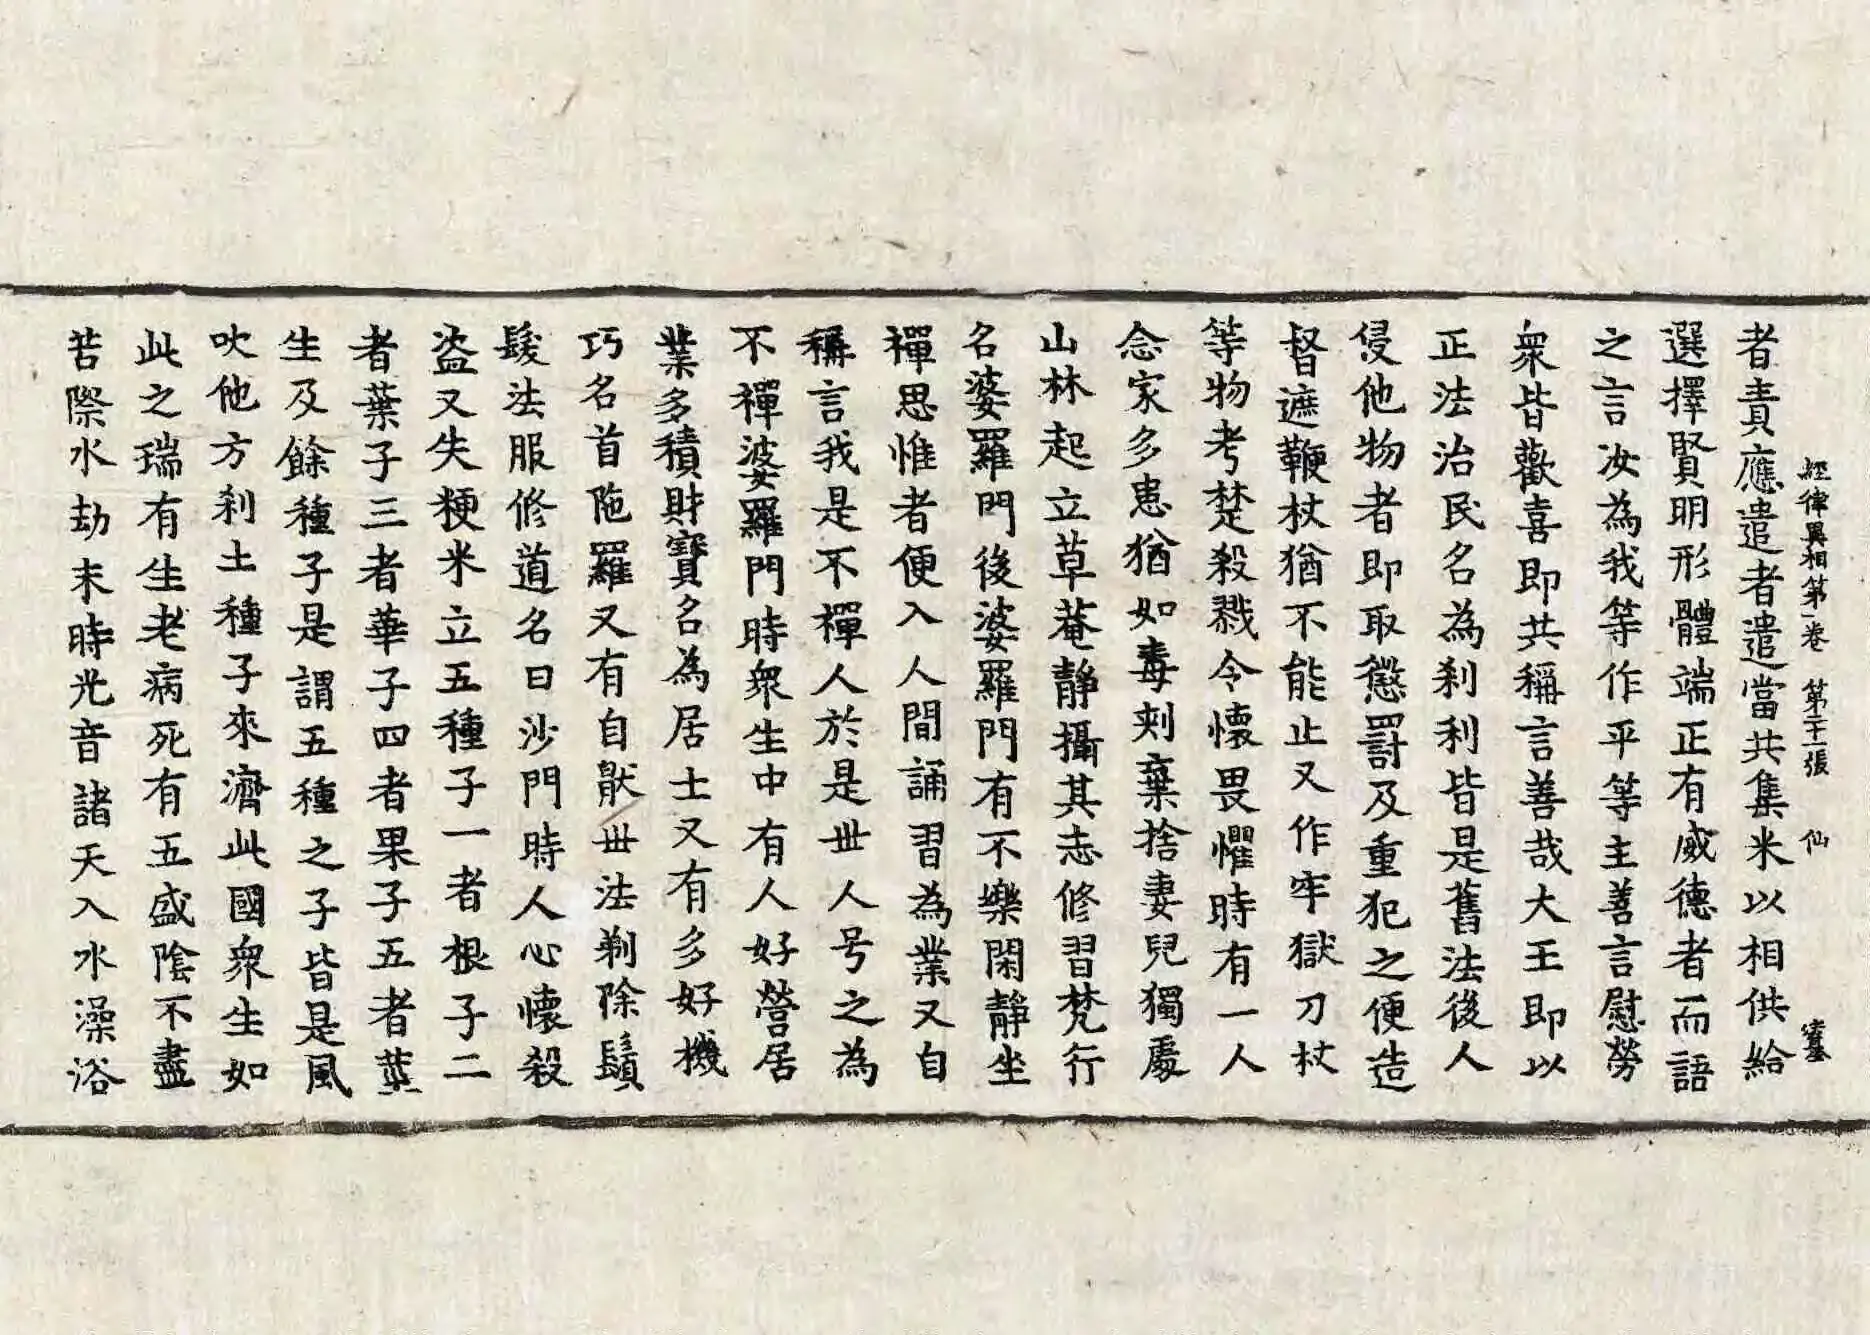 經律異相第一卷 第二十一張 仙
者責應遣者遣當共集米以相供給
選擇賢明形體端正有威德者而語
之言汝為我等作平等主善言慰勞
衆皆歡喜即共稱言善哉大王即以
正法治民名為刹利皆是舊法後人
侵他物者即取懲罰及重犯之便造
督遮鞭杖猶不能止又作牢獄刀杖
等物考楚殺戮令懷畏懼時有一人
念家多患猶如毒刺棄捨妻兒獨處
山林起立草菴靜攝其志修習梵行
名婆羅門後婆羅門有不樂閑靜坐
禪思惟者便入人間誦習為業又自
稱言我是不禪人於是丗人号之為
不禪婆羅門時衆生中有人好營居
業多積財寶名為居士又有多好機
巧名首陁羅又有自猒丗法剃除鬚
髮法服修道名曰沙門時人心懷殺
盜又失粳米立五種子一者根子二
者葉子三者華子四者果子五者莖
生及餘種子是謂五種之子皆是風
吹他方刹土種子來濟此國衆生如
此之瑞有生老病死有五盛陰不盡
苦際水劫末時光音諸天入水澡浴